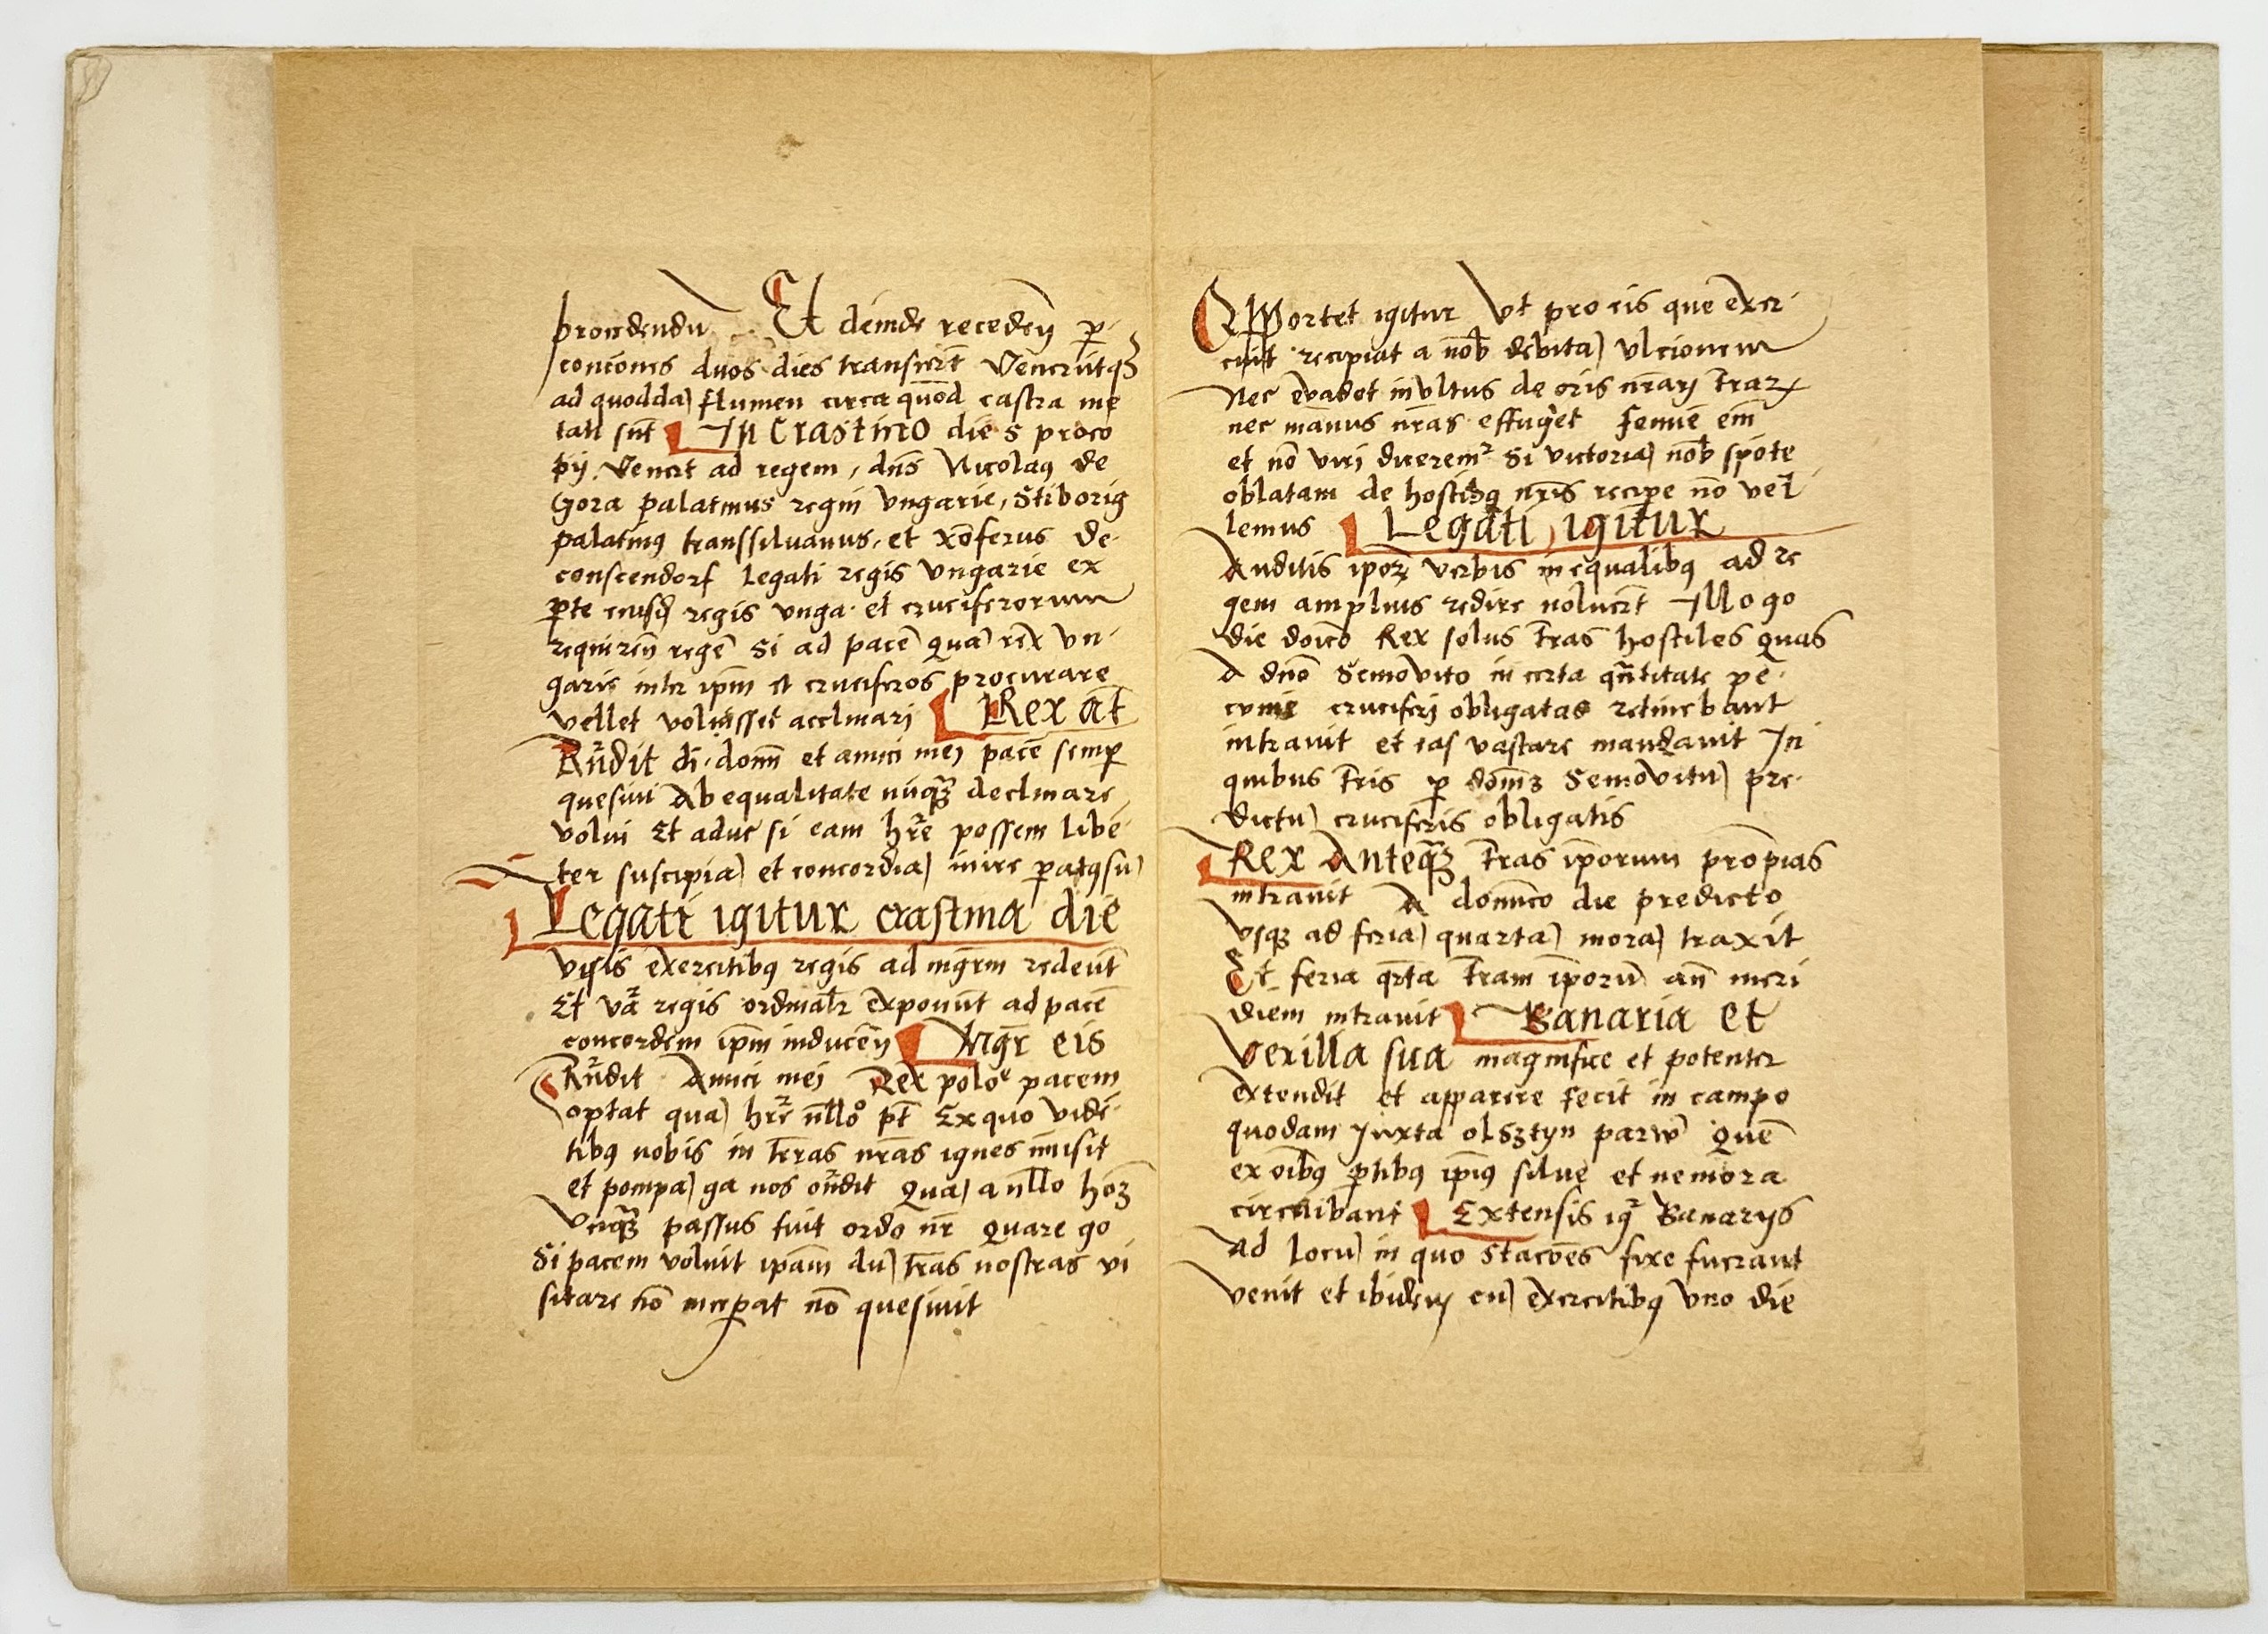 prondendu) Et deinde recedeñ p
conciones duos dies transiert Veneruntqꝫ
ad quodda) flumen circa quod castra me
tati sñt In Crastino die s proco
pij. Venert ad regem, dns Nicolaꝯ de
Gora palatinus regni Vngarie, Stiborig
palatinꝯ transsiluanus, et xoferus de
conscendorf Legati regis Vngarie ex
ꝑte eiusd regis unga. et cruciferorum
requireñ rege si ad pace qua) rex Vn
garie inter ipm et cruciferos procurare
vellet voluisset acclinari Rex at
Rndit di. domi et amici mej pace semꝑ
quesiui Ab equalitate nuqꝫ declinare
volui Et aduc si eam hre possem libe
ter suscipia) et concordia) inire paratꝯ su)
Legati igitur crastina die
Visis exercitibꝯ regis ad mgrm redeut
Et va regis ordinatr exponut ad pace
concordem ipm inducen Mgr eis
Rndit Amici mei Rex poloe pacem
optat qua) hre nllo pt Ex quo vide
tibꝯ nobis in Terras nras ignes imisit
et pompa) ga nos ondit Qua) a nllo hoꝫ
Vnqꝫ passus fuit ordo nr Quare go
Si pacem voluit ipam du) tras nostras vi
sitare no inceꝑat no quesiuit
Oportet igitur Vt pro eis que exer
cuit recipiat a nob debita) vlcionem
Nec euadet invltus de oris nrarꝫ trarꝫ
nec manus nras effuget femie eim
et no viri dicerem Si victoria) nob spote
oblatam de hostibꝯ nris recipe no vel
lemus Legati igitur
Auditis ipoꝝ verbis inequalibꝯ ad re
gem amplius redire nolucrt Illo go
die doico Rex solus tras hostiles quas
A dno Semovito in certa qntitate pe
cunie cruciferj obligatas retinebant
intrauit et eas vastare mandauit In
quibus tris ꝑ domꝫ Semovitu) pre
dictu) cruciferis obligatis
Rex Anteqꝫ tras iporum proprias
intrauit A domico die predicto
Vsqꝫ ad feria) quarta) mora) traxit
Et feria qrta tram iporu an meri
diem intrauit Banaria et
Vexilla sua magnifice et potenter
extendit et apparere fecit in campo
quodam Juxta olsztyn paruo Que
ex oibꝯ ꝑtibꝯ ipiꝯ silue et nemora
circuibant Extensis igr Banarys
ad locu) in quo stacoes fixe fuerant
venit et ibidem cu) exercitibꝯ vno die